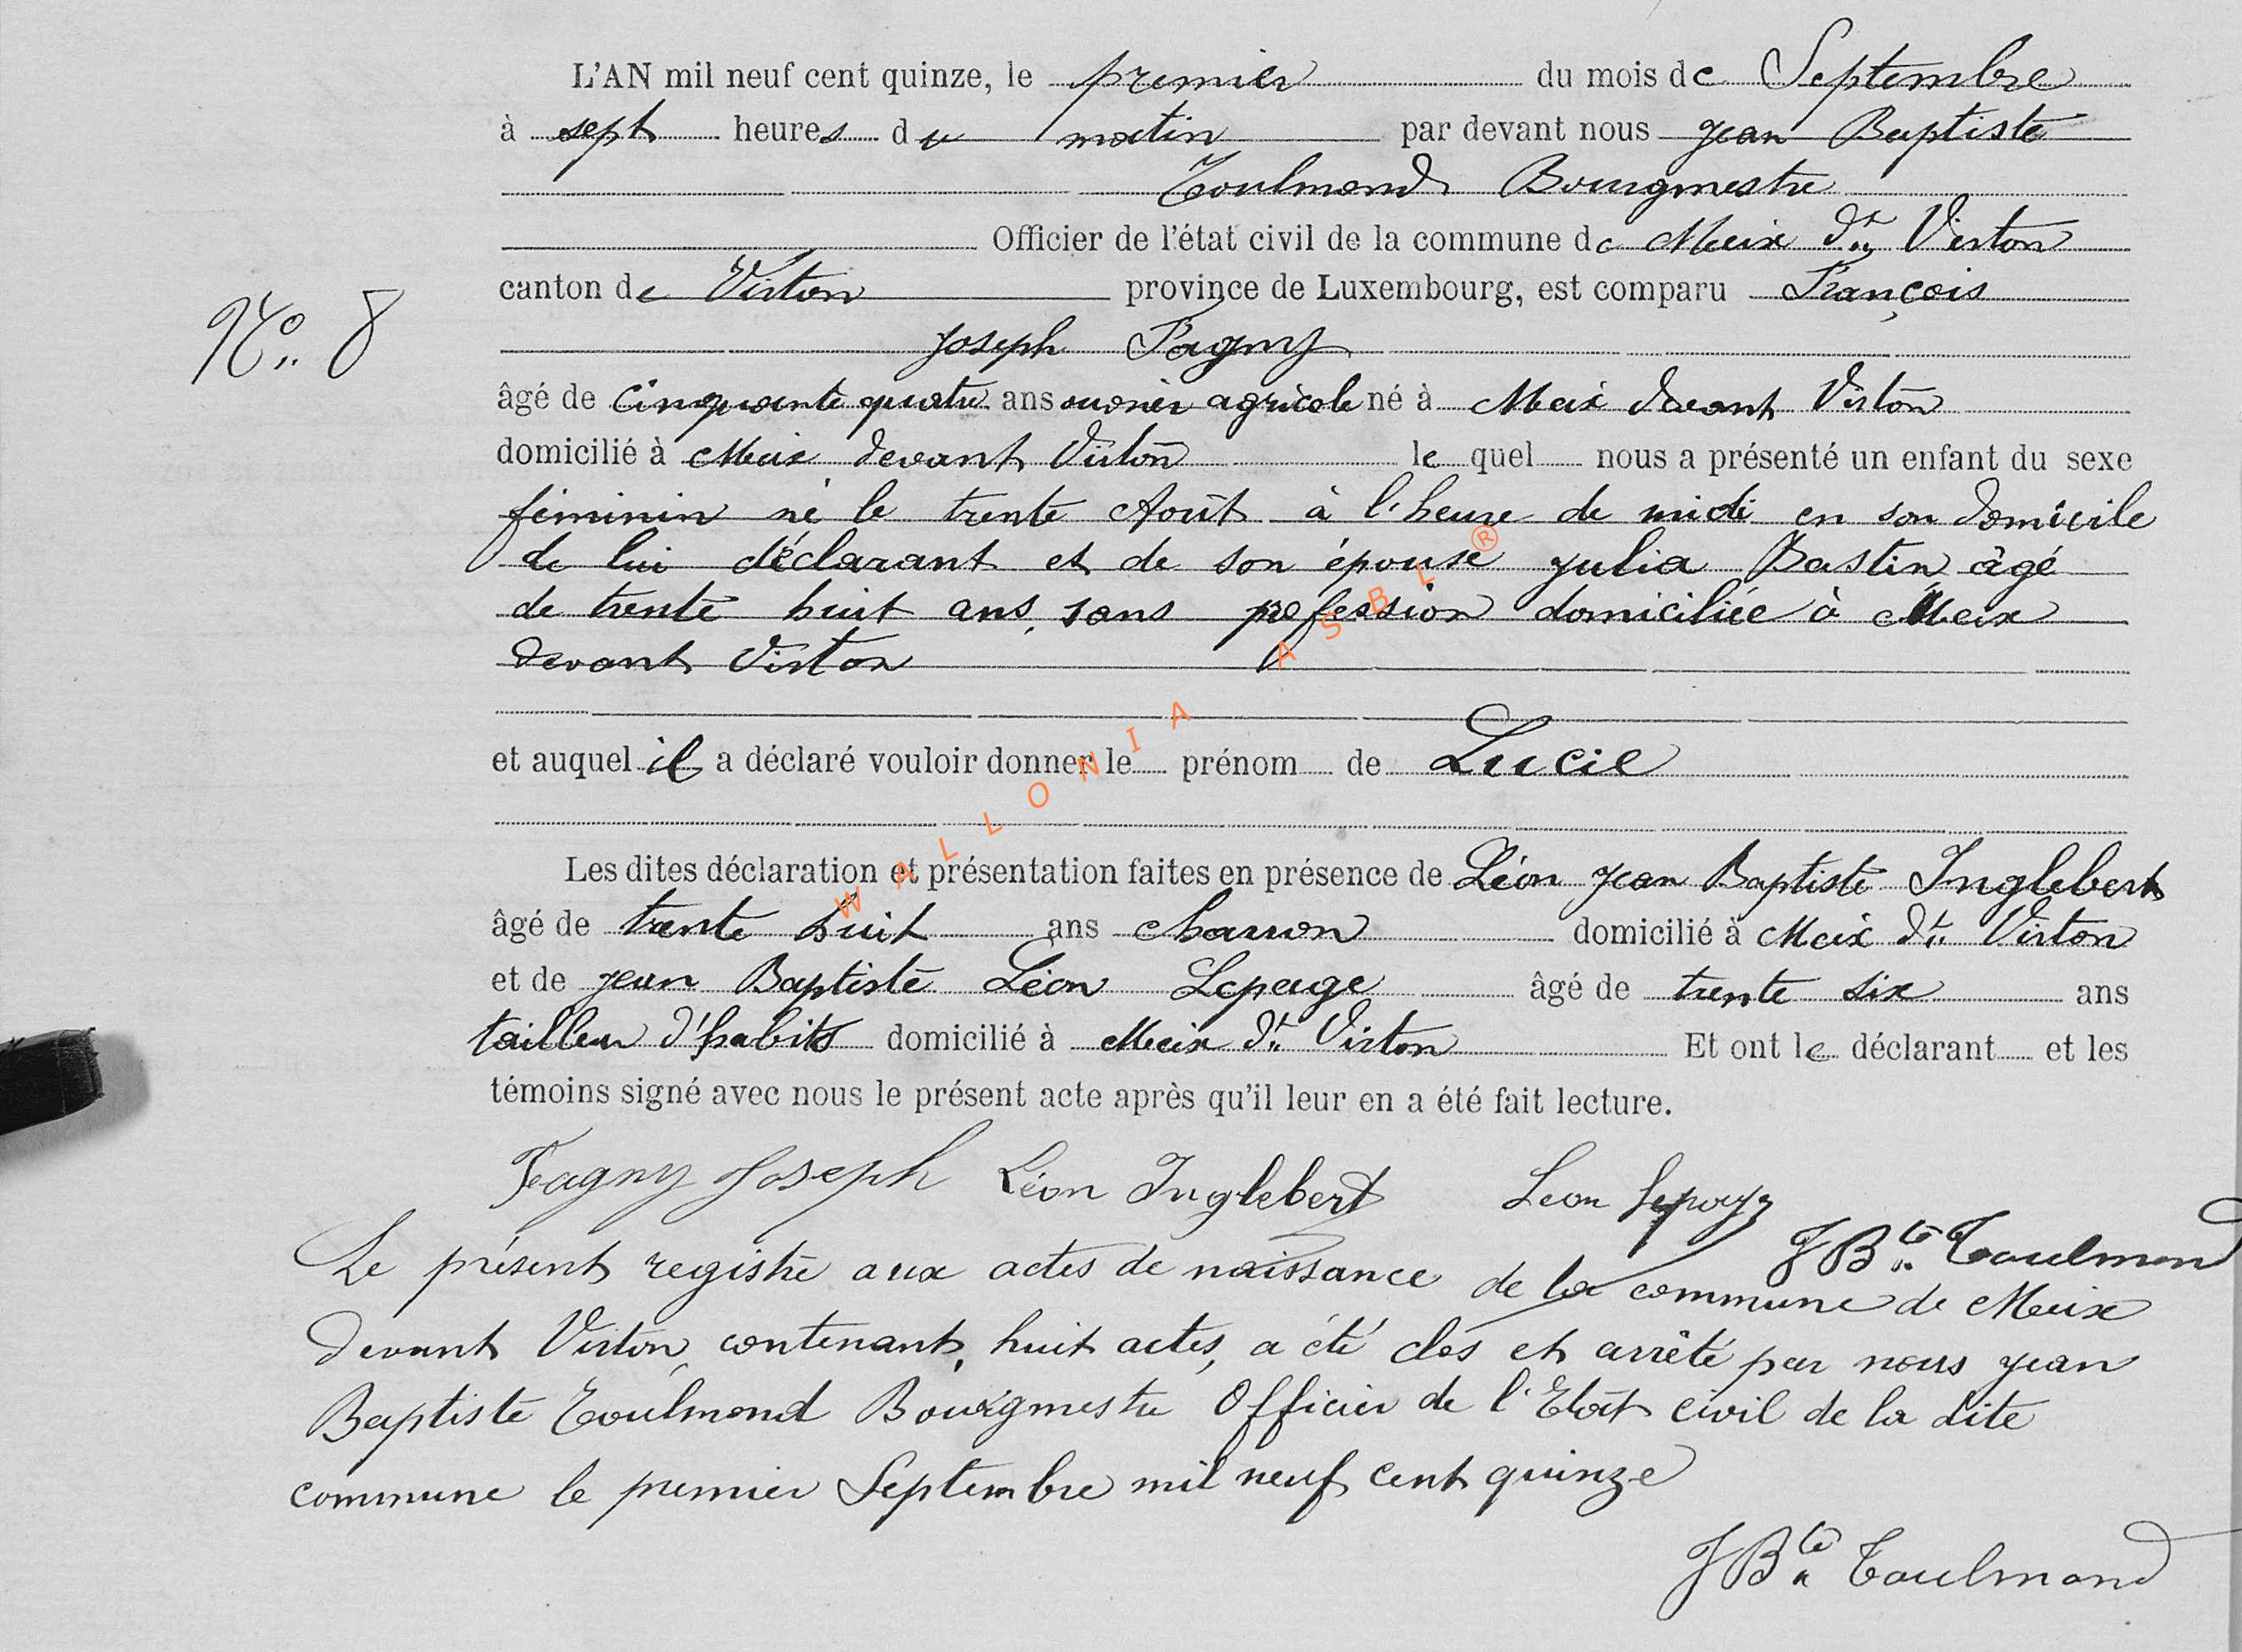 L'AN mil neuf cent quinze, le premier du mois de Septembre
à sept heures du matin par devant nous Jean Baptiste
Toulmond Bourgmestre
Officier de l'état civil de la commune de Meix dt Virton
canton de Virton province de Luxembourg, est comparu François
N° 8
Joseph Fagny
âgé de cinquante quatre ans ouvrier agricole né à Meix devant Virton
domicilié à Meix devant Virton le quel nous a présenté un enfant du sexe
féminin né le trente Août à l'heure de midi en son domicile
de lui déclarant et de son épouse Julia Bastin âgé
de trente huit ans, sans profession domiciliée à Meix
devant Virton
et auquel il a déclaré vouloir donner le prénom de Lucie
Les dites déclaration et présentation faites en présence de Léon Jean Baptiste Inglebert
âgé de trente huit ans charron domicilié à Meix dt Virton
et de Jean Baptiste Léon Lepage âgé de trente six ans
tailleur d'habits domicilié à Meix dt Virton Et ont le déclarant et les
témoins signé avec nous le présent acte après qu'il leur en a été fait lecture.
Fagny Joseph Léon Inglebert Leon Lepage
JBte Toulmond
Le présent registre aux actes de naissance de la commune de Meix
devant Virton, contenant, huit actes, a été clos et arrêté par nous Jean
Baptiste Toulmond Bourgmestre Officier de l'Etat civil de la dite
commune le premier Septembre mil neuf cent quinze
JBte Toulmond
WALLONIA ASBL ®